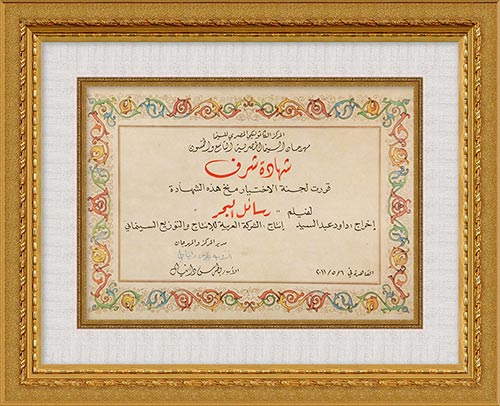 المركز الكاثوليكي المصري للسينما
مهرجان السينما المصرية التاسع والخمسون
شهادة شرف
قررت لجنة الاختيار منح هذه الشهادة
لفيلم : رسائل البحر
إخراج : داود عبد السيد إنتاج : الشركة العربية للإنتاج والتوزيع السينمائي
مدير المركز والمهرجان
الأب / بطرس دانيال
القاهرة في ٢٠١١/٥/٦